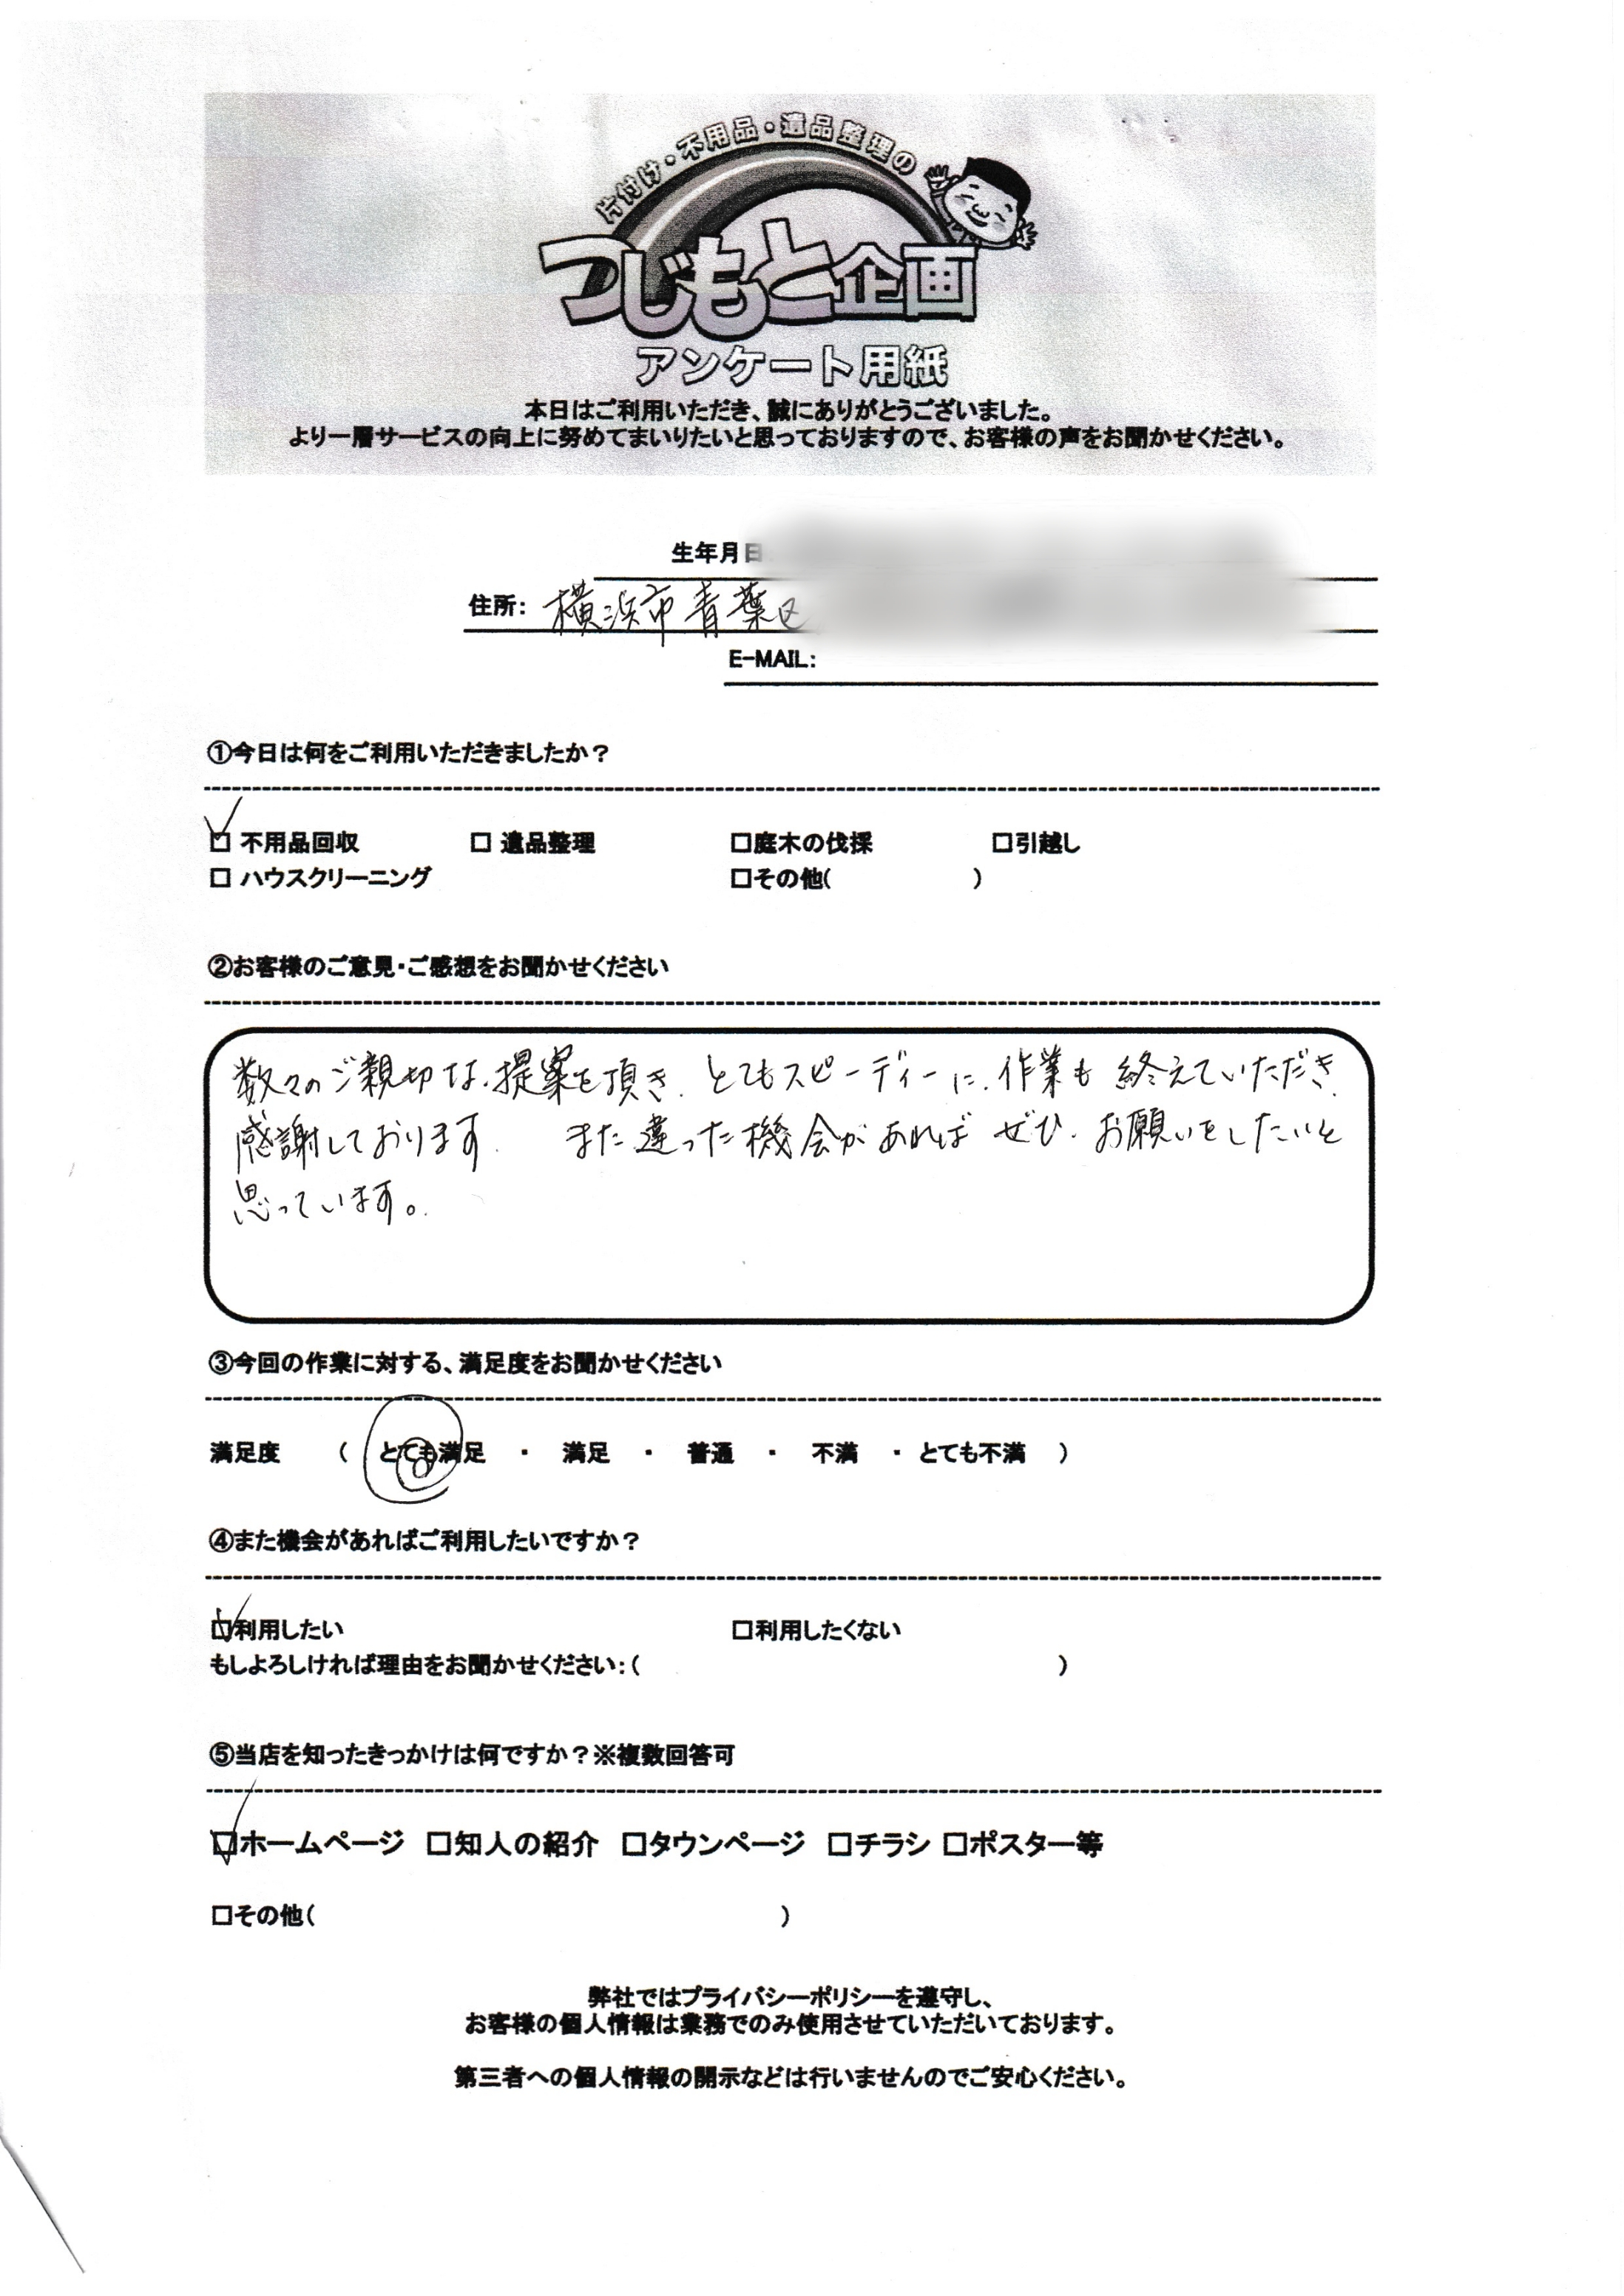 片付け・不用品・遺品整理の
つじもと企画
アンケート用紙
本日はご利用いただき、誠にありがとうございました。
より一層サービスの向上に努めてまいりたいと思っておりますので、お客様の声をお聞かせください。
生年月日
住所: 横浜市青葉区
E-MAIL:
①今日は何をご利用いただきましたか？
☑ 不用品回収 □ 遺品整理 □庭木の伐採 □引越し
□ ハウスクリーニング □その他( )
②お客様のご意見・ご感想をお聞かせください
数々のご親切な提案を頂き、とてもスピーディーに、作業も終えていただき
感謝しております。 また違った機会があれば ぜひ お願いをしたいと
思っています。
③今回の作業に対する、満足度をお聞かせください
満足度 ( とても満足 ・ 満足 ・ 普通 ・ 不満 ・ とても不満 )
④また機会があればご利用したいですか？
☑利用したい □利用したくない
もしよろしければ理由をお聞かせください：( )
⑤当店を知ったきっかけは何ですか？※複数回答可
☑ホームページ □知人の紹介 □タウンページ □チラシ □ポスター等
□その他( )
弊社ではプライバシーポリシーを遵守し、
お客様の個人情報は業務でのみ使用させていただいております。
第三者への個人情報の開示などは行いませんのでご安心ください。